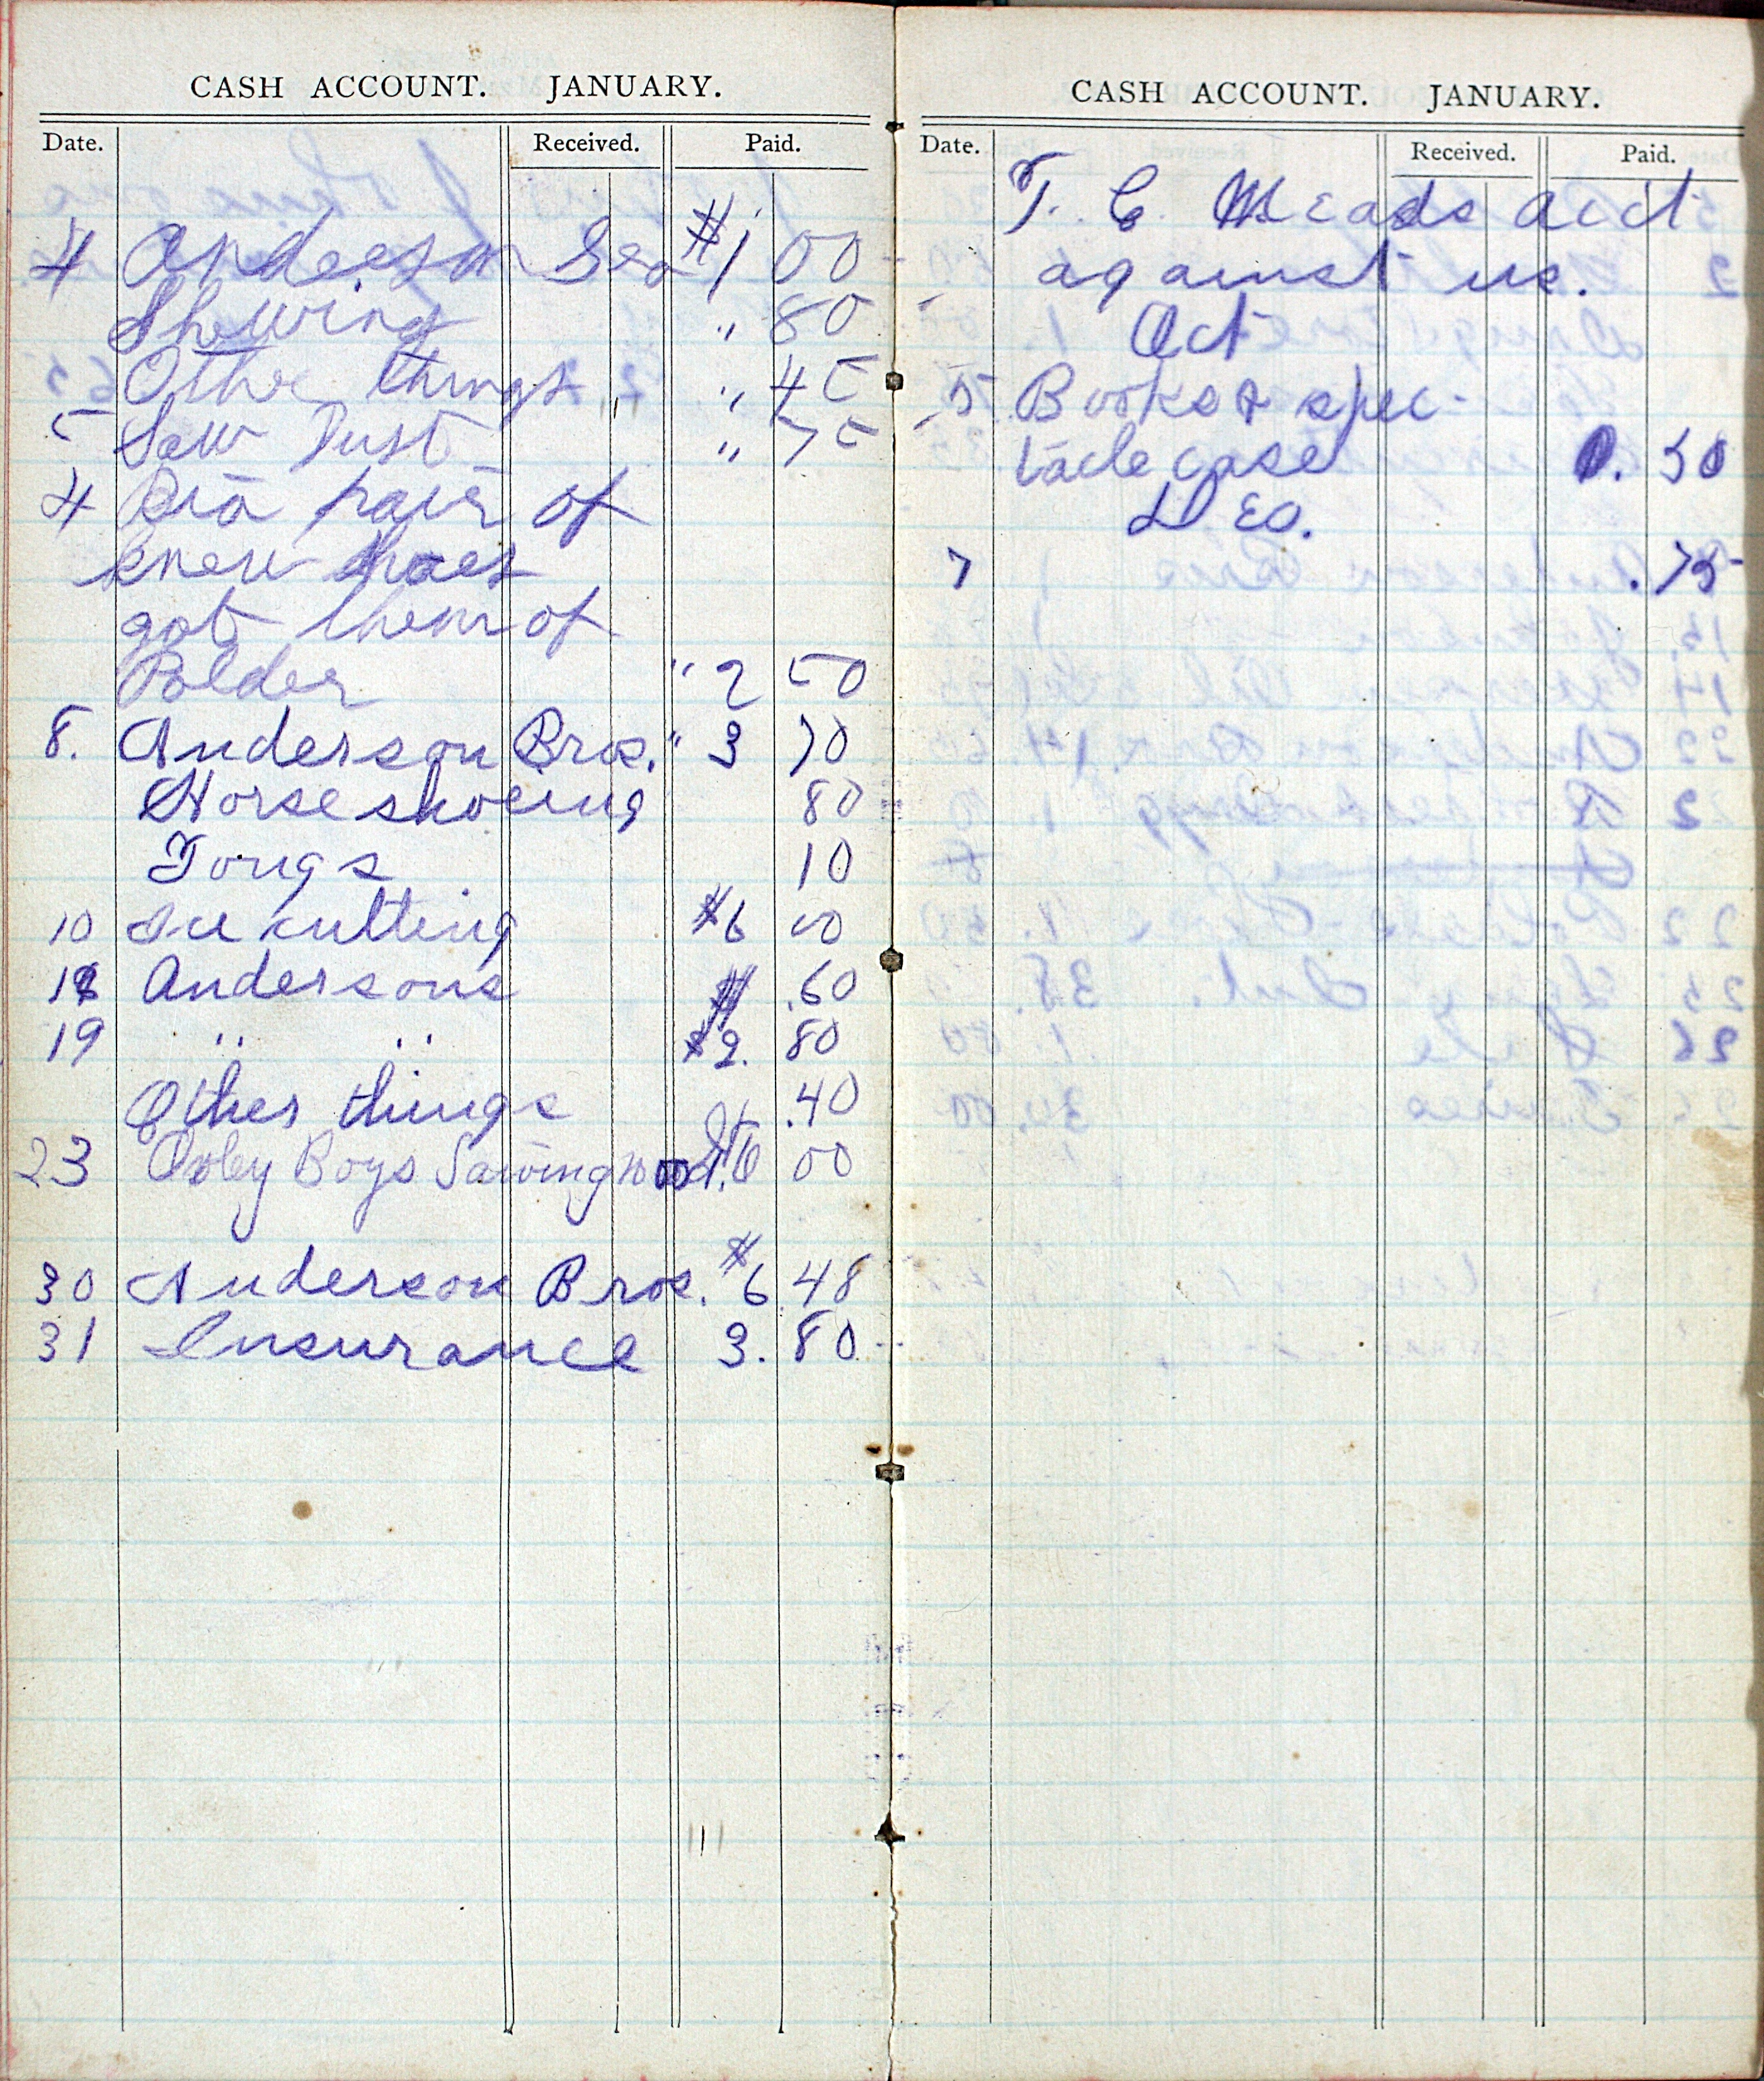 CASH ACCOUNT. JANUARY.
Date. Received. Paid.
4 Anderson $1 00
Shewing " 80
Othe things " 45
5 Saw Dust " 75
4 Ria pair of
knew shoes
got them of
Polder " 2 50
8. Anderson Bros. " 3 70
Horse shoeing 80
Tongs 10
10 Ice cutting $6 00
Andersons .60
19 " " $2. 80
Other things .40
23 Boys Sawing wood 00
30 Anderson Bros. $6.48
31 Insurance 3. 80
CASH ACCOUNT. JANUARY.
Date. Received. Paid.
T. C. Meads acct
against us.
Act
5 Books & spec-
tacle case 0. 50
7 .75